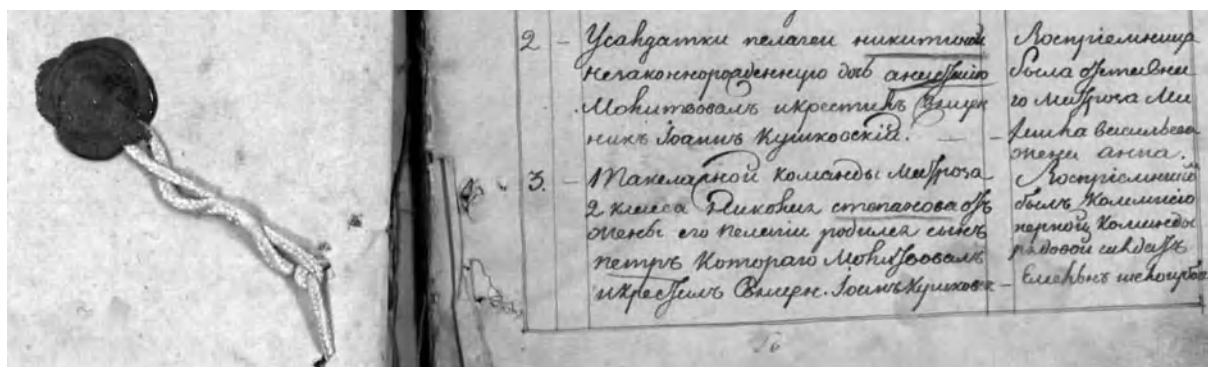 2 - Усалдатки пелагеи никитиной
незаконнорожденную дочь анисию
Молитвовалъ икрестилъ Священ
никъ Іоаннъ Кушковскій. -
Воспріемница
была отставна
го матроза Ми
хаила васильева
жена анна.
3. - Такелажной команды Матроза
2 класса Якова степанова отъ
жены его пелагіи родился сынъ
петръ Котораго Молитвовалъ
икрестилъ Священ. Іоаннъ Кушковск
Воспріемникъ
былъ Комисіо
нерной Команды
рядовой салдатъ
16